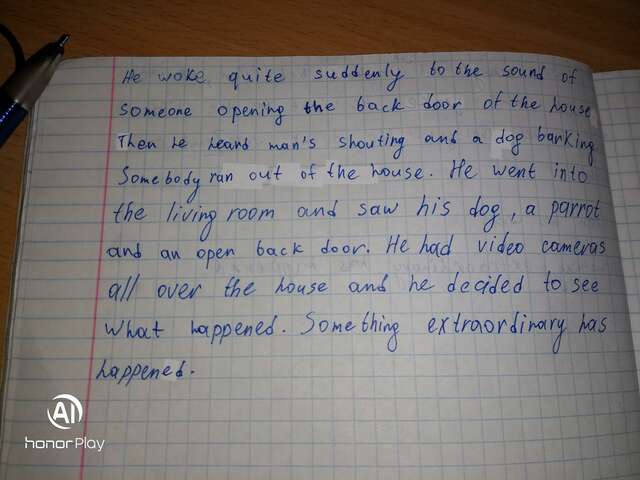 He woke quite suddenly to the sound of
someone opening the back door of the house
Then he heard man's shouting and a dog barking
Somebody ran out of the house. He went into
the living room and saw his dog, a parrot
and an open back door. He had video cameras
all over the house and he decided to see
what happened. Something extraordinary has
happened.
AI
honor Play